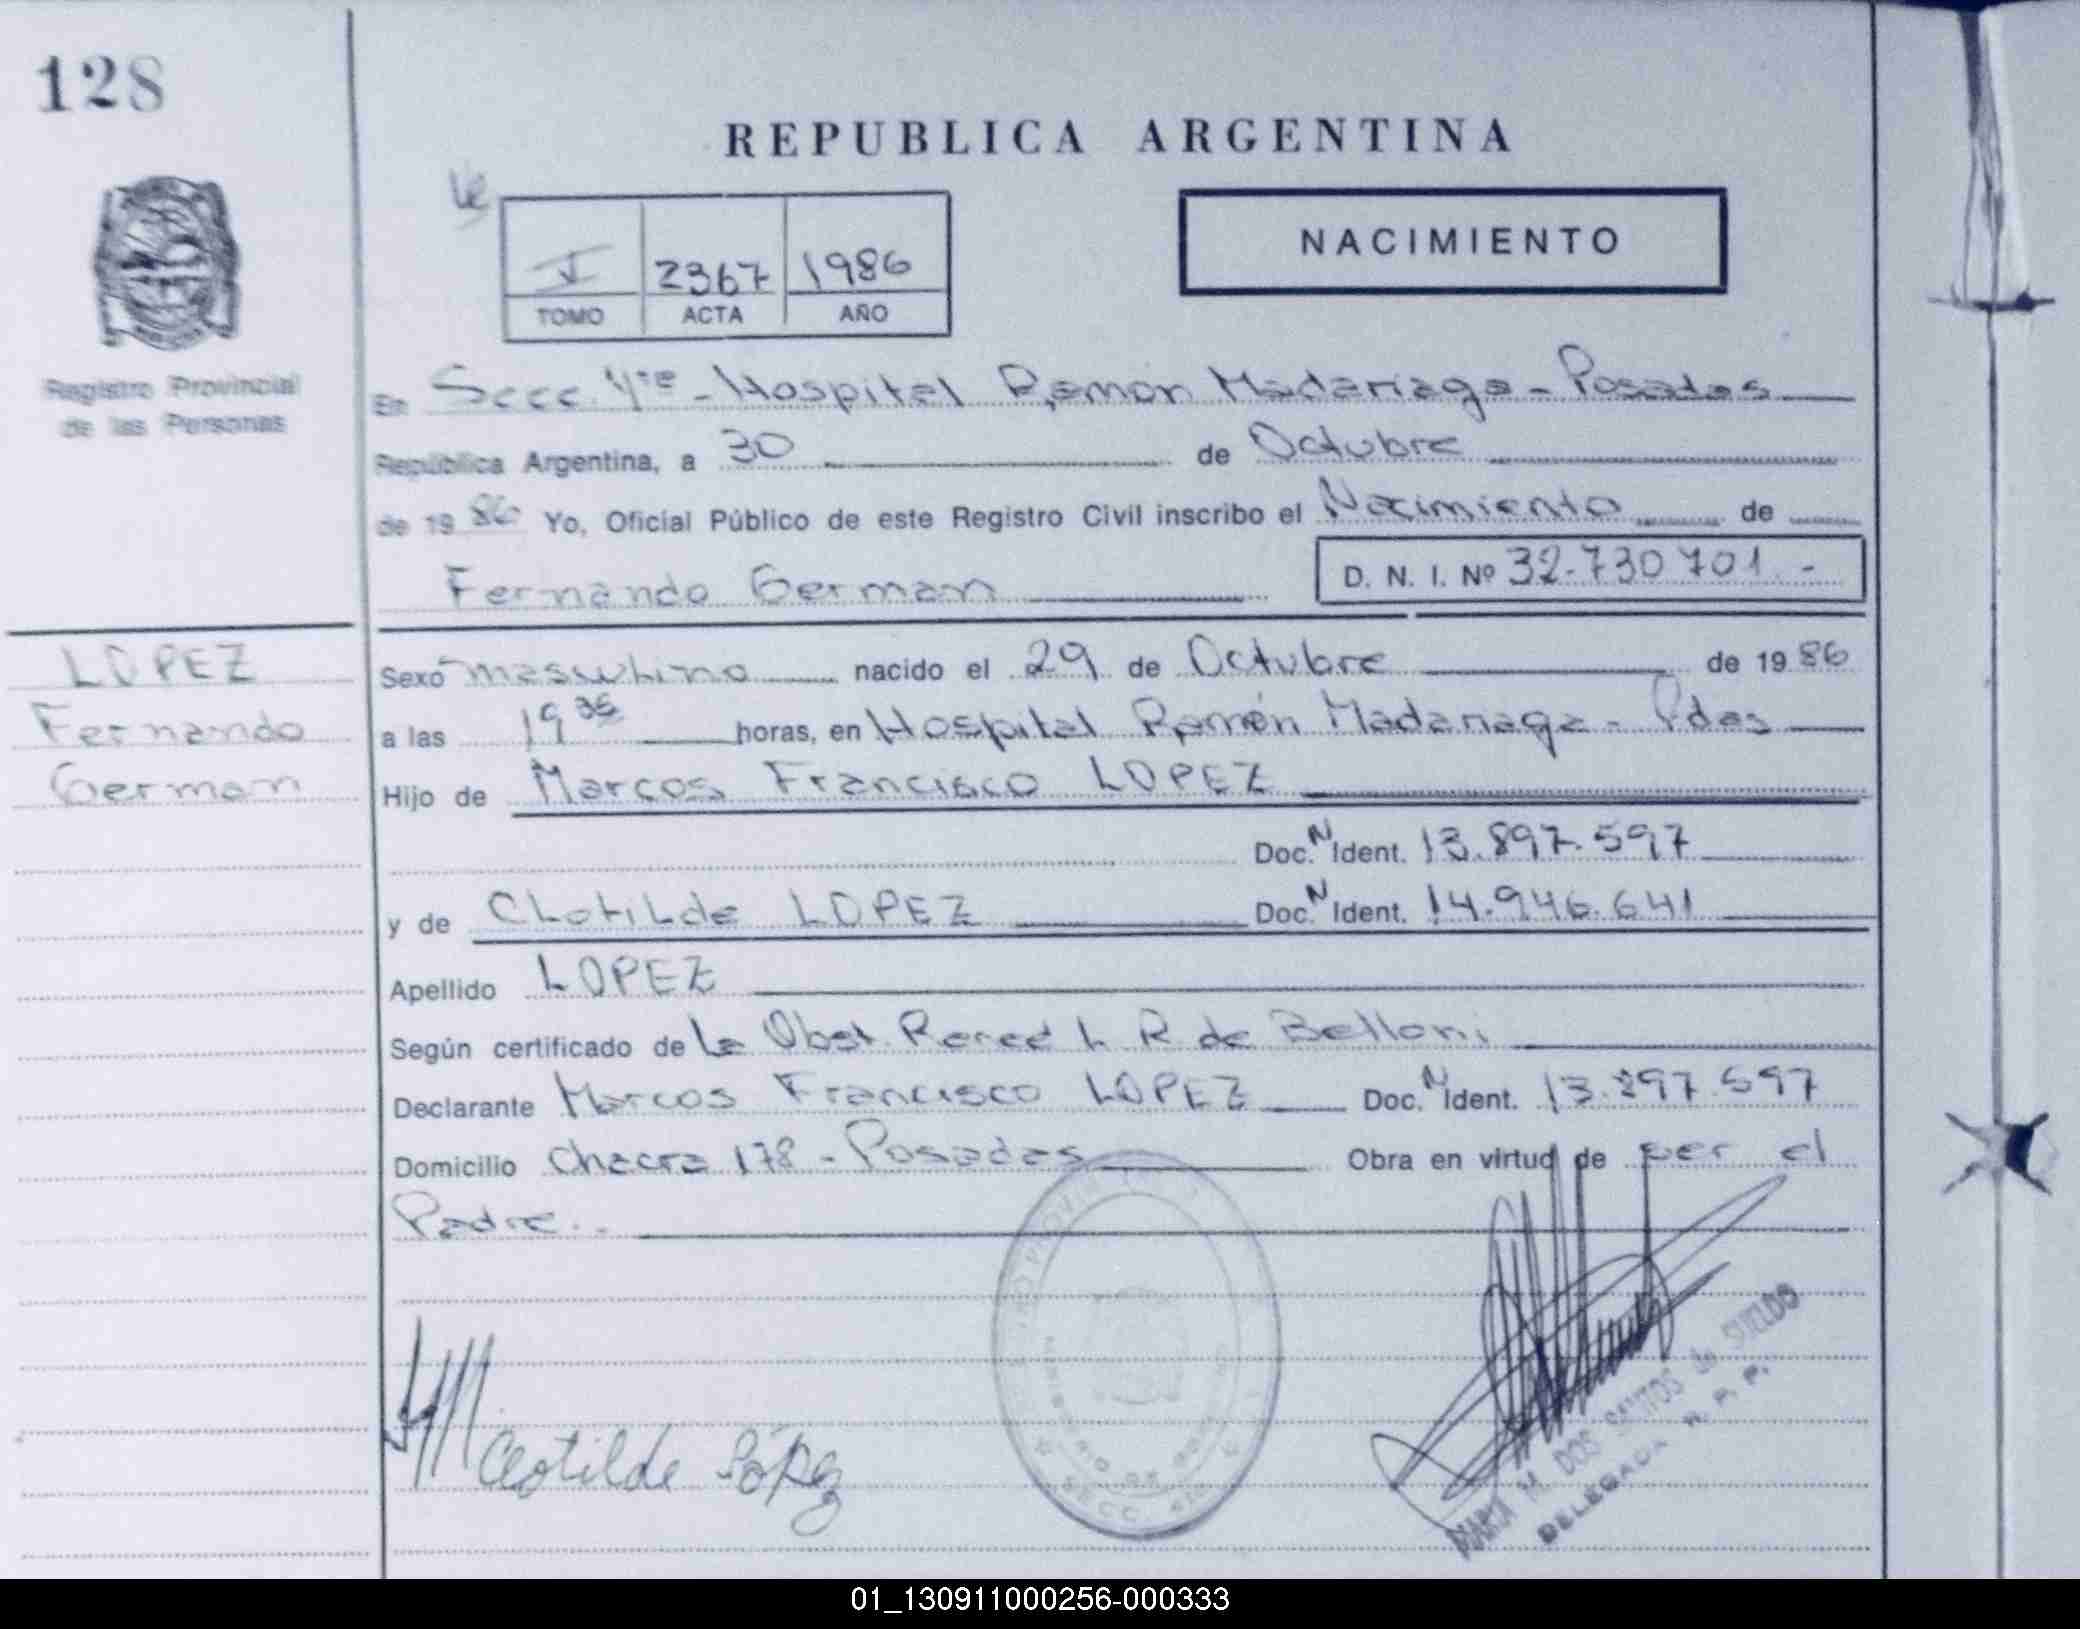 128
REPUBLICA ARGENTINA
NACIMIENTO
I 2367 1986
TOMO ACTA AÑO
Registro Provincial
de las Personas
En Secc. 4ta - Hospital Ramón Madariaga - Posadas
República Argentina, a 30 de Octubre
de 19 86 Yo, Oficial Público de este Registro Civil inscribo el Nacimiento de
Fernando German D. N. I. Nº 32.730701.-
LOPEZ
Fernando
German
Sexo masculino nacido el 29 de Octubre de 19 86
a las 19 35 horas, en Hospital Ramón Madariaga - Pdas
Hijo de Marcos Francisco LOPEZ
Doc. N Ident. 13.897.597
y de CLotiLde LOPEZ Doc. N Ident. 14.946.641
Apellido LOPEZ
Según certificado de La Obst. L. R. de Belloni
Declarante Marcos Francisco LOPEZ Doc. N Ident. 13.897.597
Domicilio Chacra 178 - Posadas Obra en virtud de ser el
Padre.-
Clotilde López
MARIA M. DOS SANTOS de SUELDO
DELEGADA R. P. P.
SECC. 4ta
01_130911000256-000333